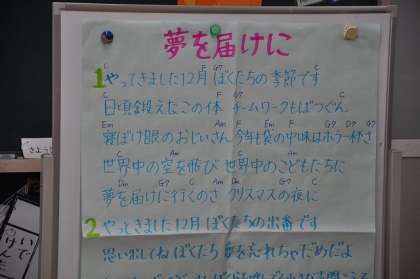 夢を届けに
C F G7 C
1 やってきました12月 ぼくたちの季節です
C F G7 C
日頃鍛えたこの体 チームワークもばつぐん
Em Am F Em F G7 D7 G7
寝ぼけ眼のおじいさん 今年も袋の中味はホラ一杯さ
C Am C Am
世界中の空を飛び 世界中のこどもたちに
Dm G7 C Am Dm G7 C
夢を届けに行くのさ クリスマスの夜に
2 やってきました12月 ぼくたちの出番です
思い出してね ぼくたち 夢を忘れちゃだめだよ
さようなら